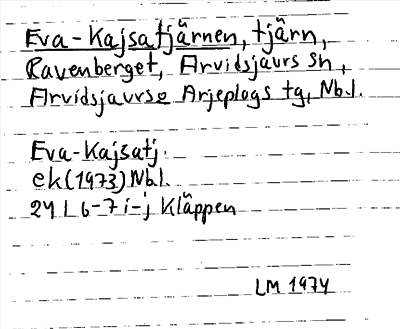 Eva-Kajsatjärnen, tjärn,
Ravenberget, Arvidsjaurs sn,
Arvidsjaurs o Arjeplogs tg, Nbl.
Eva-Kajsatj.
ek (1973) Nbl.
24 I 6-7 i-j Kläppen
LM 1974